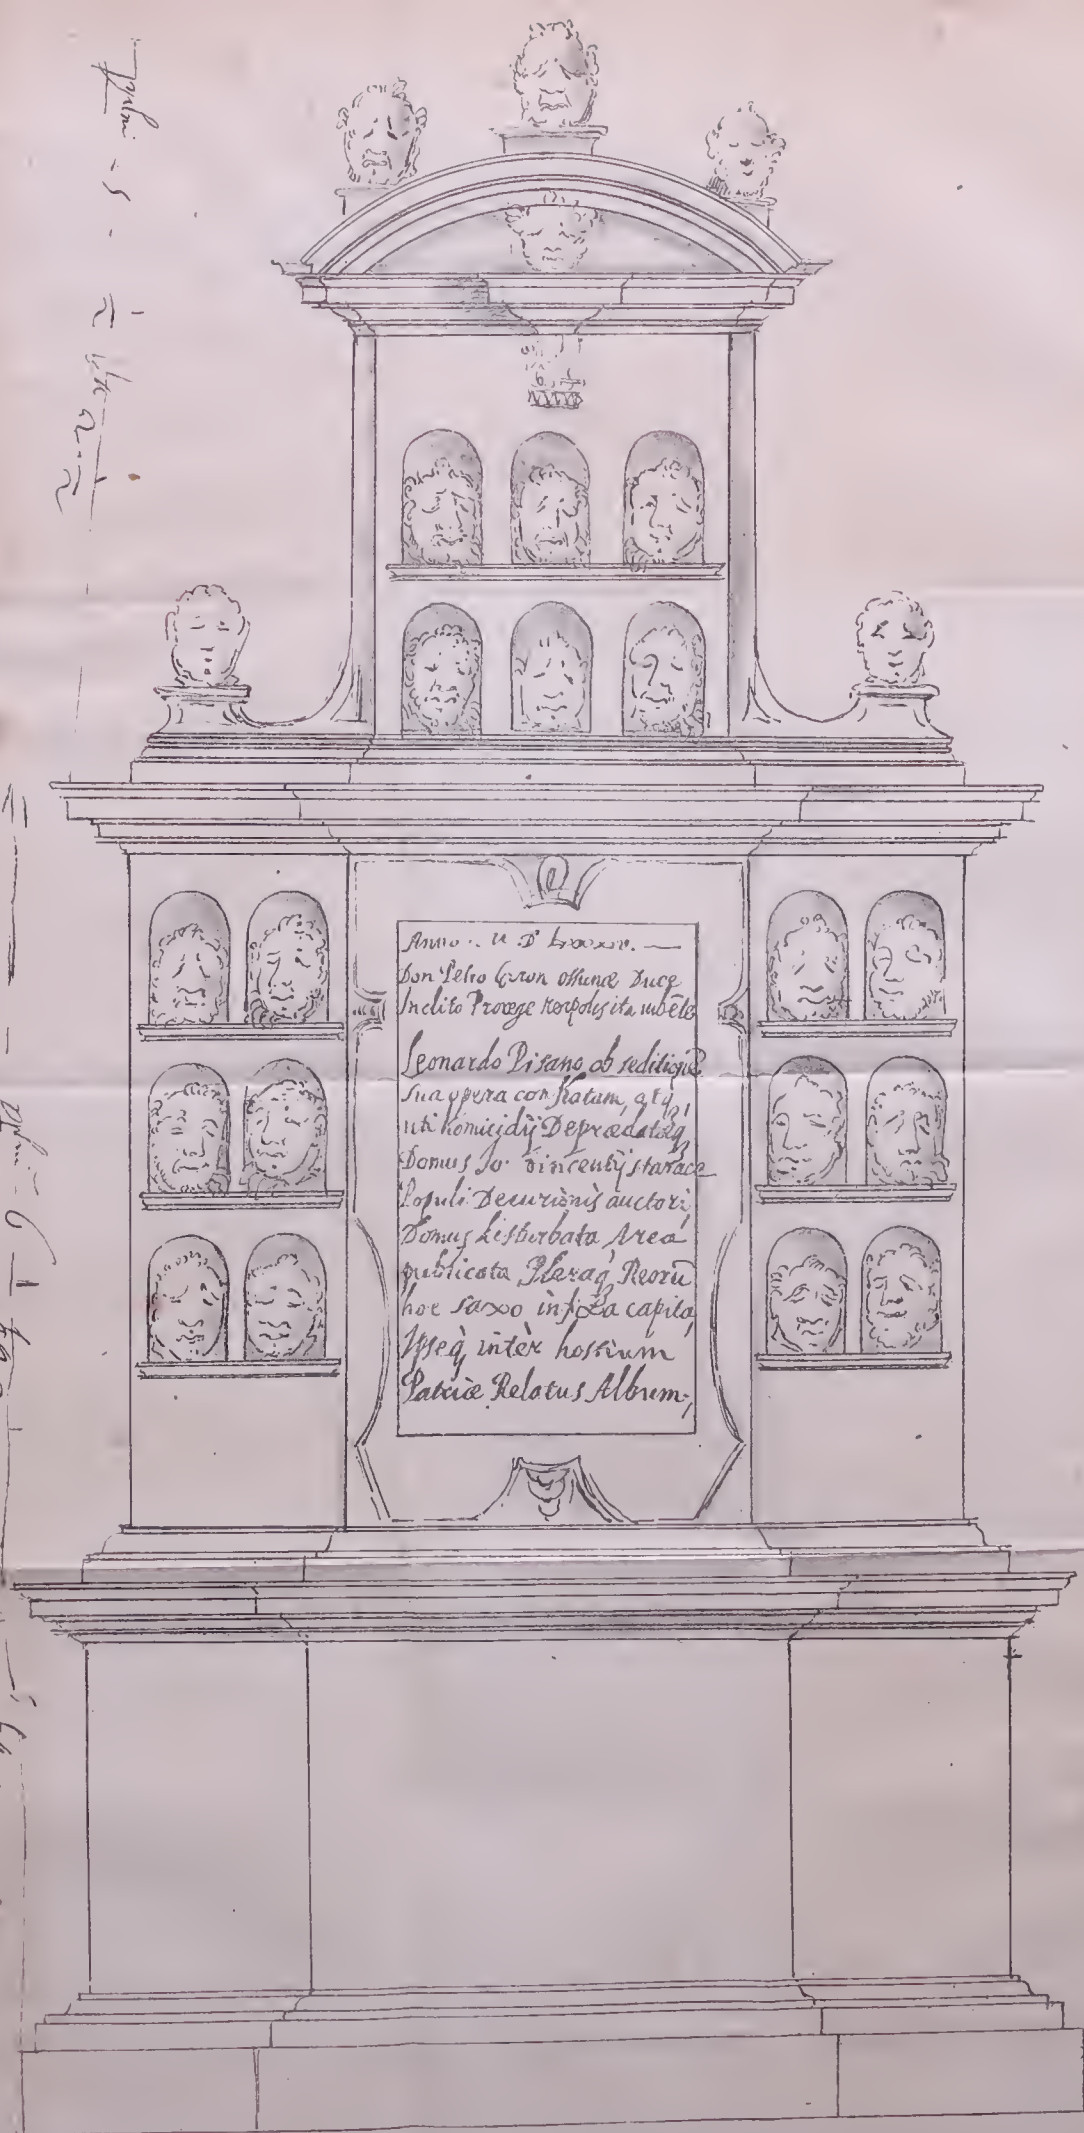 Anno .. M D Lxxxiv. —
Don Petro Giron ossunæ Duce
Inclito Prorege Neapolis ita iubēte
Leonardo Pisano ob seditionē
sua opera conflatam, atq,
uti homicidij Deprædatæq,
Domus Jo: Vincentij starace
Populi Decurionis auctori,
Domus disturbata, Area
publicata Pleraq, Reorū
hoc saxo infixa capita,
Ipseq, intèr hostium
Patriæ Relatus Album;
Palmi - 5 -
Palmi - 6